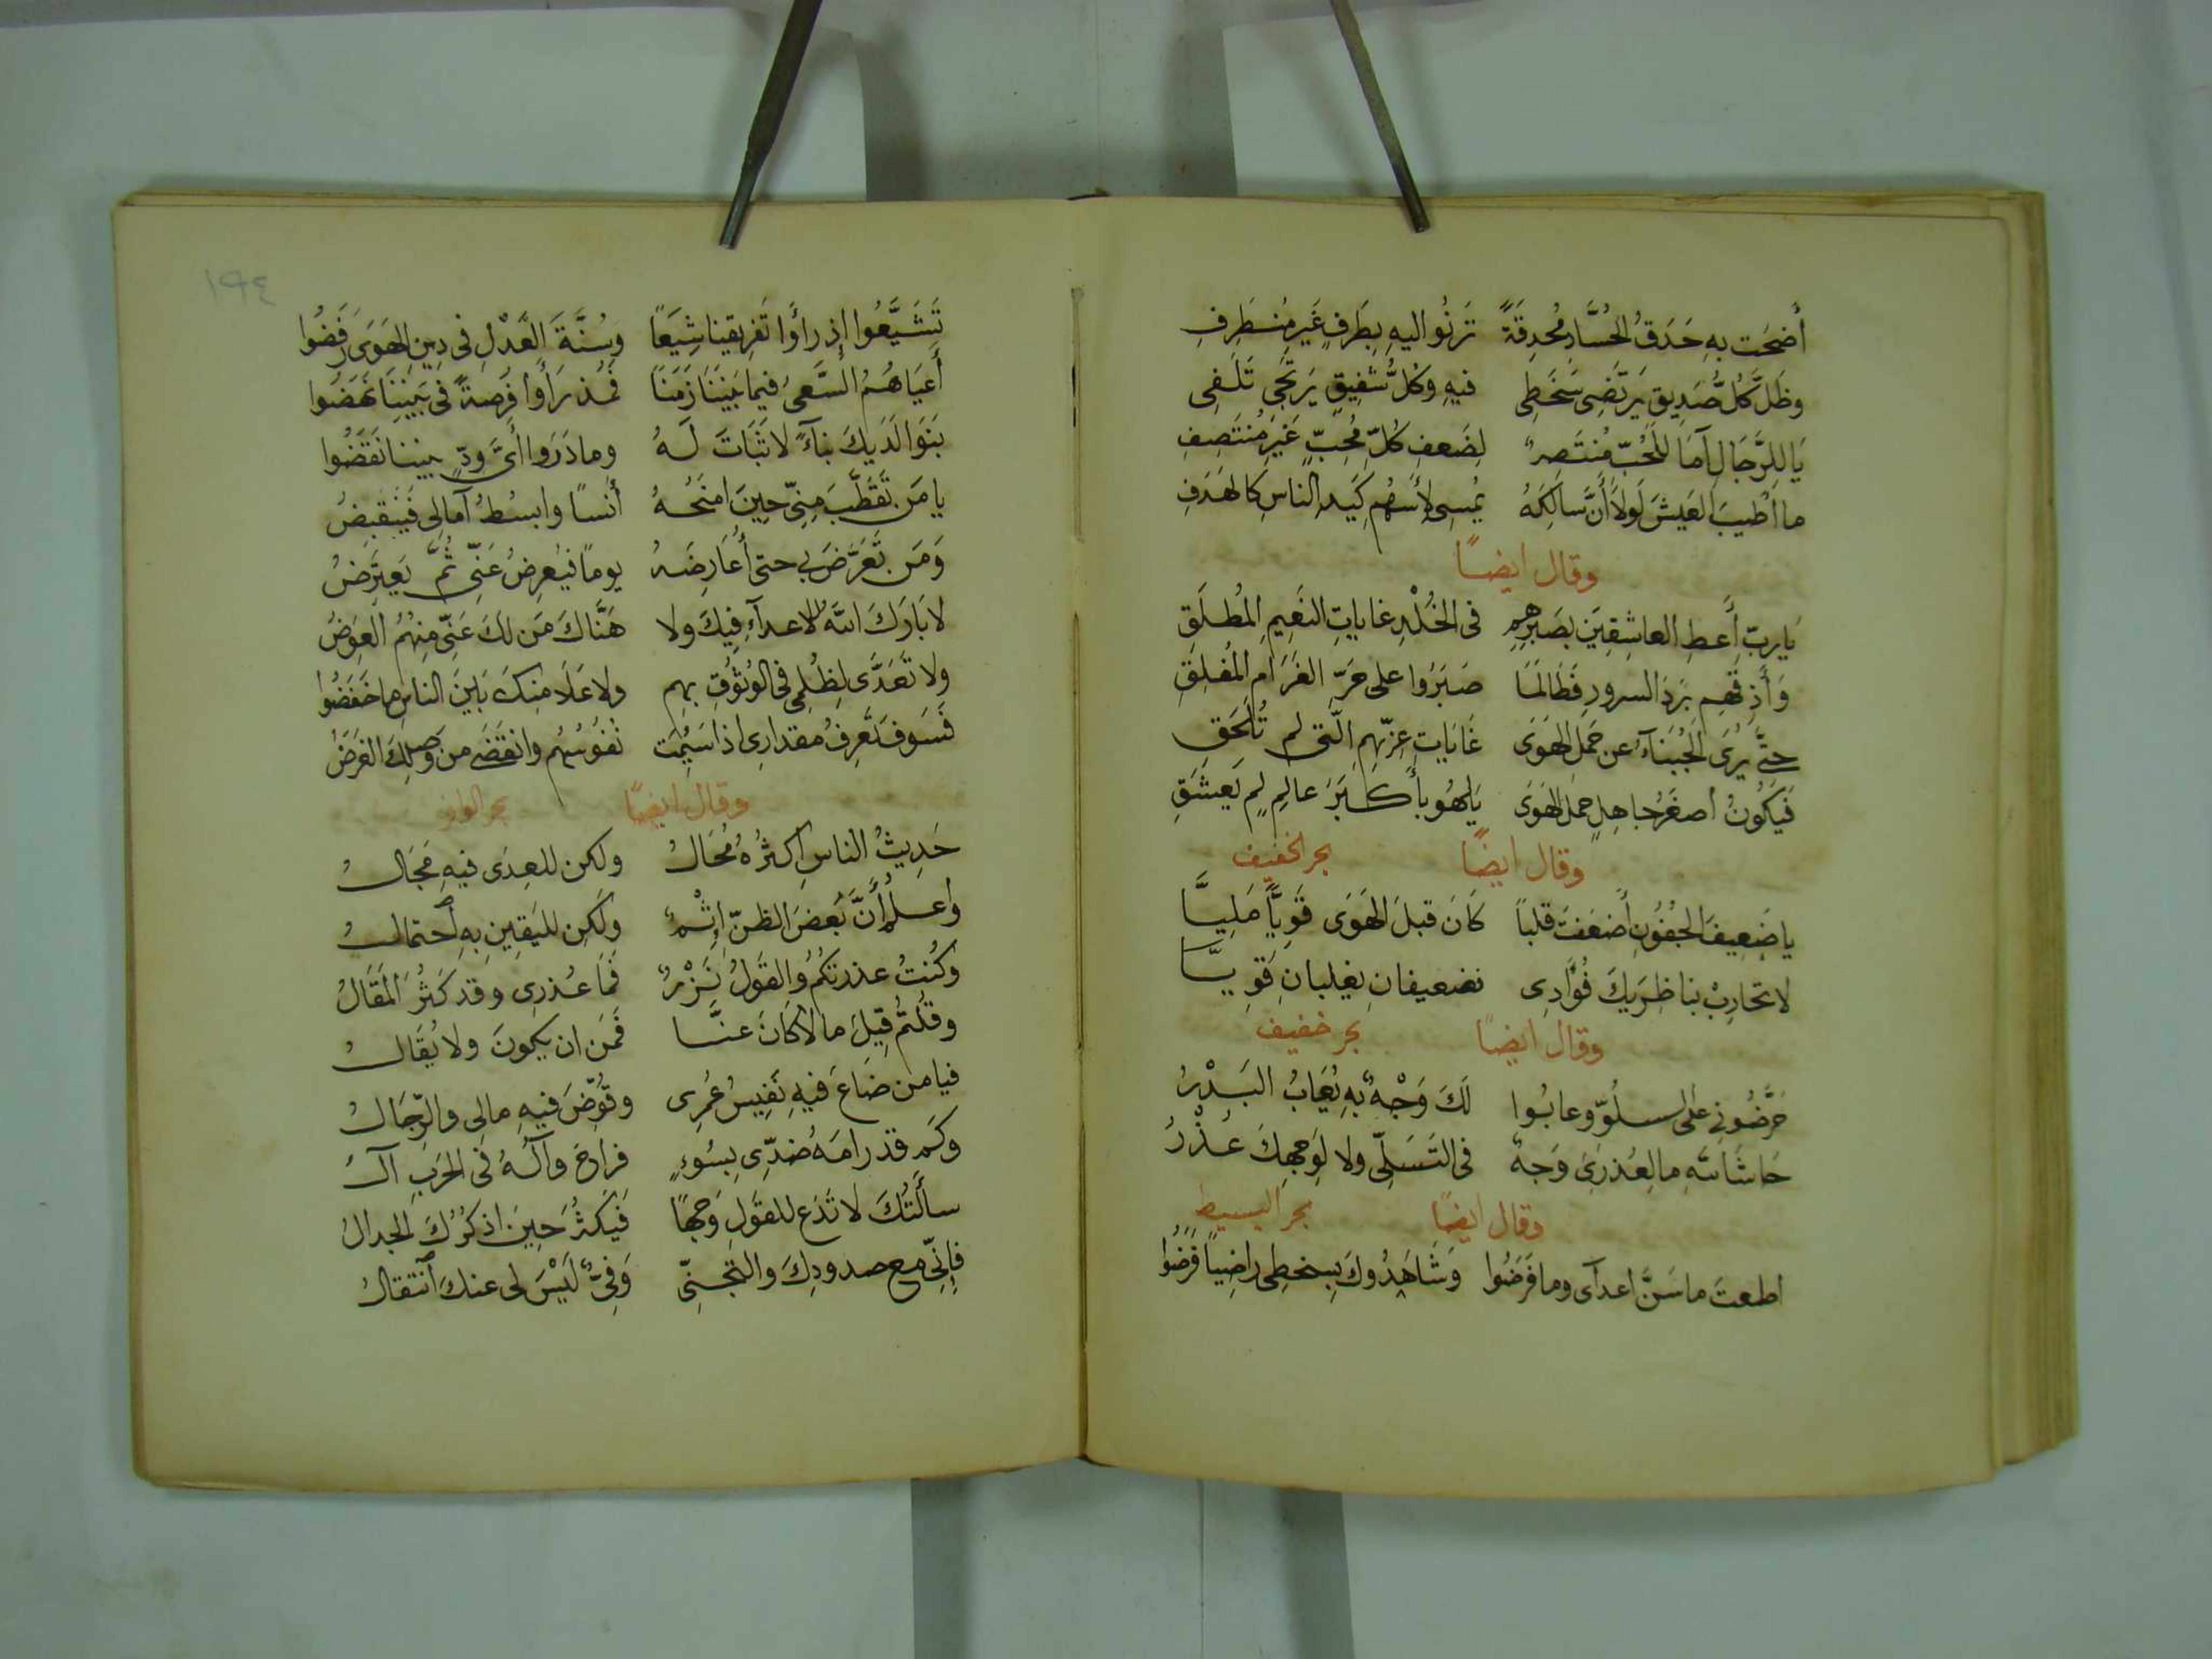 أَضحَت بهِ حَدَقُ الحُسَّادِ مُحدِقَةً تَرنُوا اليهِ بِطَرفٍ غَيرِ مُنطَرِفِ
وظَلَّ كُلُّ صَدِيقٍ يَرتَضِى سَخَطِى فيهِ وكلُّ شَفِيقٍ يَرتَجِى تَلَفِى
يَا لِلرَّجَالِ آمَا لِلحُبِّ مُنتَصِرٌ لِضَعفِ كُلِّ مُحِبٍّ غَيرِ مُنتَصِفِ
ما اَطيَبَ العَيشَ لَولاَ أَنَّ سالِكَهُ يُمسِى لأَسهُمِ كَيدِ الناسِ كالهَدَفِ
وقال ايضًا
يَاربِّ أَعطِ العاشِقِينَ بصَبرِهِم فى الخُلْدِ غاياتِ النَعِيمِ المُطلَقِ
وَأَذِقهِم بَردَ السرورِ فَطَالَمَا صَبَرُوا على حَرِّ الغَرَامِ المُقلِقِ
حتَّى يُرَى الجُبَنآءُ عن حَملِ الهَوَى غَايَاتِ عِزّهِمِ الّتى لم تُلحَقِ
فَيَكُونُ أصغَرُ جاهِلٍ حملَ الهَوَى يَلهُو بأَكبَرَ عالِمٍ لم يَعشَقِ
وقال ايضًا بحر الخفيف
يا ضَعِيفَ الجُفُونِ أَضعَفتَ قلبًا كَانَ قبلَ الهَوَى قَوِيًّا مَلِيَّا
لا تحَارِبْ بنا ظِرَيكَ فُؤَادِى فضعيفانِ يغلبانِ قَوِيَّا
وقال ايضًا بحر خفيف
حَرَّضُونِى على السلُوّ وعابُوا لَكَ وَجْهًا بهِ يُعَابُ البَدْرُ
حَاشَا لله مالِعُذرِىَ وَجهٌ فى التَسَلِّى ولا لِوَجهِكَ عُذْرُ
وقال ايضًا بحر البسيط
اطعتَ ما سَنَّ اعدآى وما فَرَضُوا وَشَاهَدُوكَ بِسخطِى راضِيًا فَرَضُوا
١٩٤
تَشَيَّعُوا إِذ رأَوا تَفرِيقَنا شِيَعًا وسُنَّةَ العَدْلِ فى دِينِ الهَوَى رَفَضُوا
أَعيَاهُمُ السَّعىُ فيما بَينَنَا زَمَنًا فَمُذ رَأَوا فُرصةً فى بَينِنَا نَهَضُوا
بَنَوا لَدَيكَ بنآءً لا ثَبَاتَ لَهُ وما دَرَوا أَىَّ وِدٍّ بيننا نَقَضُوا
يا مَن تَقَطَّبَ مِنِّى حِينَ امنَحُهُ أُنسًا وابسُطُ آمالِى فَيَنقَبِضُ
وَمَن تَعَرَّضَ بى حتى أُعَارِضَهُ يومًا فيُعرِضُ عَنِّى ثُمَّ يَعتَرِضُ
لا بَارَكَ اللهُ للاعدآءِ فِيكَ ولا هَنَّاكَ مَن لَكَ عَنِّى مِنهُمُ العِوَضُ
ولا تَعَدَّى لِظُلمِى فى الوُثُوقِ بهِم ولا عَلَا مِنكَ بَينَ الناسِ ما خَفَضُوا
فَسَوفَ تَعرِفُ مقدارِى اذا سَئِمَت نُفُوسُهُم وانقَضَى من وَصلِكَ الغَرَضُ
وقال ايضًا بحر الوافر
حَدِيثُ الناسِ اكثرُهُ مُحَالُ ولكن للعِدَى فيهِ مَجَالُ
واعلمُ أَنَّ بَعضَ الظنِّ إِثْمٌ ولَكِن لليَقِينِ بهِ اَحتمالُ
وكُنتُ عذرتكُمُ والقَولُ نَزْرٌ فَمَا عُذرِى وقد كَثُرَ المَقَالُ
وقُلتُم قِيلَ مالا كانَ عنَّا فَمَن ان يكونَ ولا يُقَالُ
فيا من ضَاعَ فيهِ نَفِيسُ عُمرِى وقُوِّضَ فيهِ مالِى والرِّجَالُ
وكَم قد رامَهُ ضدِّى بِسُوءٍ فراغَ وآلُهُ فى الحَربِ آلُ
سأَلتُكَ لا تَدَع للقَولِ وَجهًا فَيَكثُرَ حِينَ اذكرُكَ الجدالُ
فإِنِّى مع صدودِكَ والتَجنِّى وَفِىٌّ لَيْسَ لى عنكَ اَنتقالُ